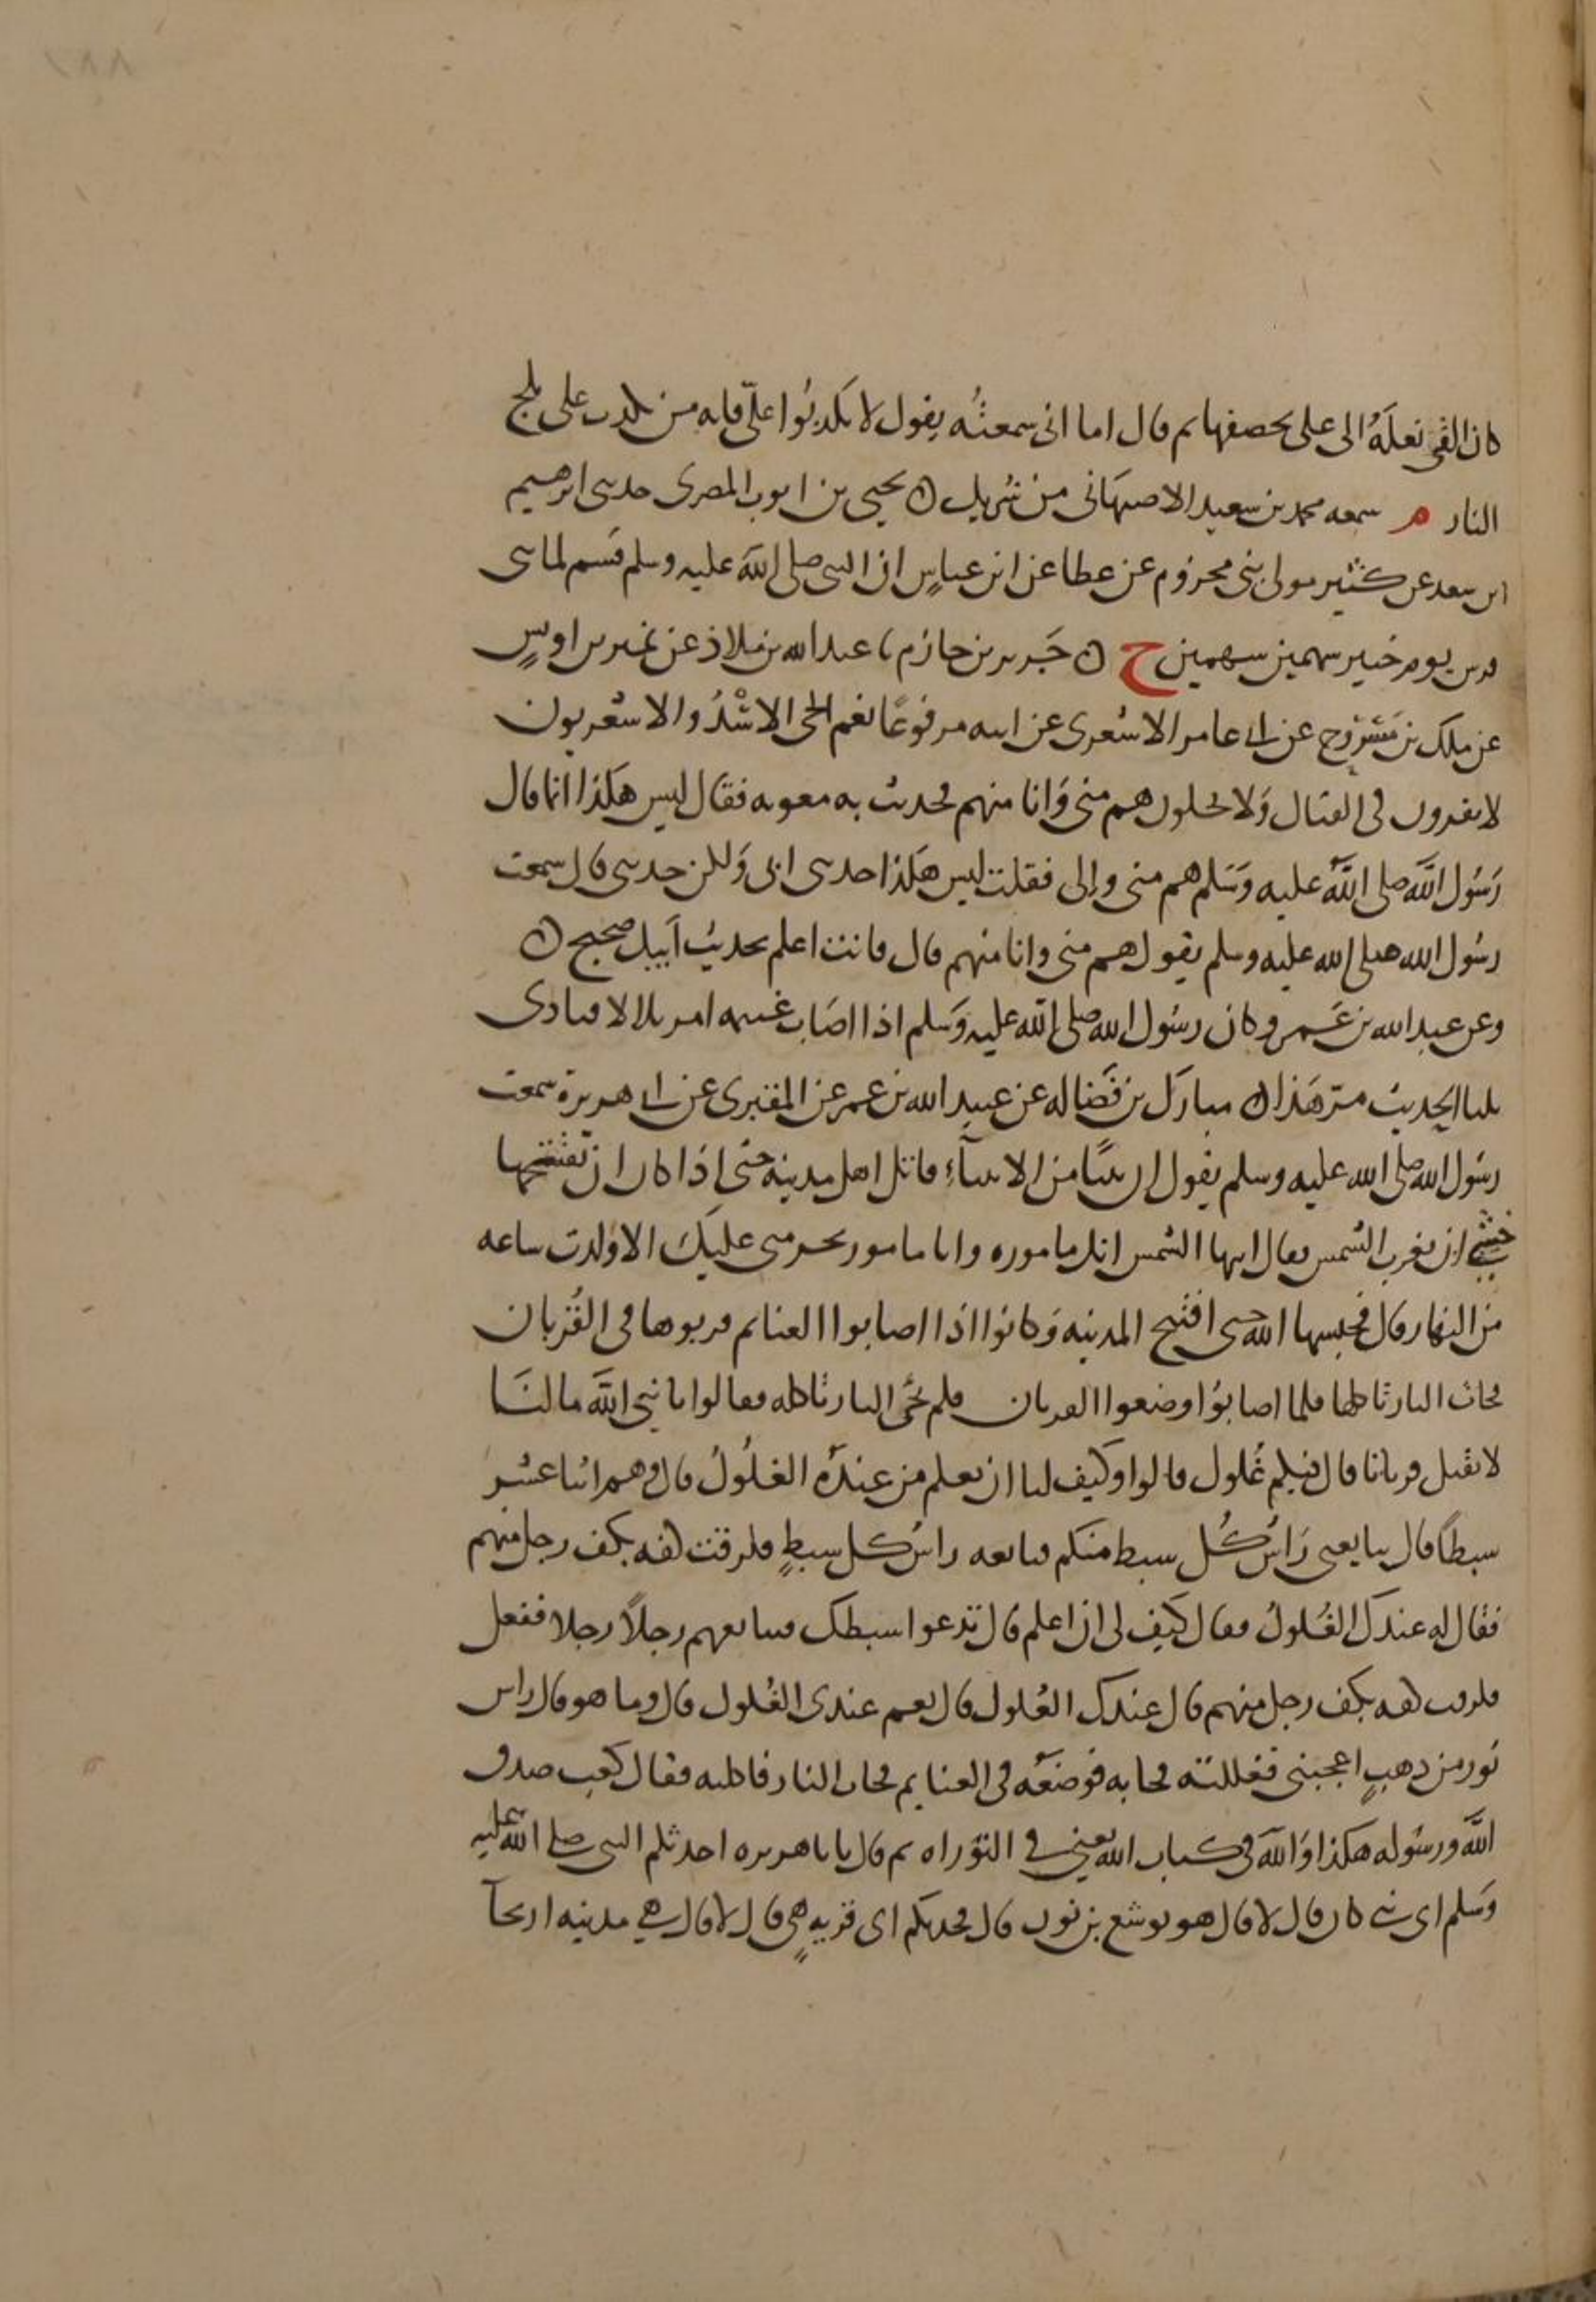 كان القى نعله الى على يخصفها ثم قال اما انى سمعتُه يقول لا تكذبُوا علىّ فانه من يكذب على يلج
النار م سمعه محمد بن سعيد الاصبهانى من شريك ن يحيى بن ايوب المصرى حدثنى ابرهيم
ابن سعد عن كثير مولى بنى مخزوم عن عطا عن ابن عباسٍ ان النبى صلى الله عليه وسلم قسم لمائتى
فرس يوم خيبر سهمين سهمين خ ن جَرير بن حازم نا عبد الله بن ملاذ عن نمير بن اوسٍ
عن ملك بن مسروح عن ابى عامر الاشعرى عن ابيه مرفوعًا نعم الحى الاسْدُ والاشعريون
لا يفرون فى القتال وَلا يغلون هم منى وَانا منهم فحدثت به معويه فقال ليس هكذا انما قال
رَسُول اللهَ صلى اللهُ عليه وَسَلم هم منى وإلى فقلت ليس هكذا حدثنى ابى وَلكن حدثنى قال سمعت
رسُول الله صلى الله عليه وسلم يقول هم منى وانا منهم قال فانت اعلم بحديث اَبيك صحيح ن
وعن عبد الله بن عَمرو كان رسُول الله صلى الله عليه وَسلم اذا اصَاب غنيمه امر بلالا فنادى
ثلثا الحديث مرّ هَذا ن مبارك بن فَضاله عن عبيد الله بن عمر عن المقبرى عن ابى هريرة سمعت
رسُول الله صلى الله عليه وسلم يقول ان نبيًا من الانبيآءِ قاتل اهل مدينه حتى اذا كاد ان يفتتحها
خشى ان تغرب الشمس فقال ايها الشمس انك ماموره وانا مامور بحرمتى عليكَ الا وُلدت ساعه
من النهار قال فحبسها الله حتى افتتح المدينه وَكانوا اذا اصابوا الغنايم قربوها فى القُربان
فجات النار فاكلتها فلما اصابُوا وضعوا القربان فلم تجئ النار تاكله فقالوا يا نبى اللهَ ما لنَا
لا تقبل قرباننا قال فيكم غُلول قالوا وكيف لنا ان نعلم من عندَه الغلُولُ قال وهم اثنا عشر
سبطًا قال يبايعنى رَاسُ كُل سبط منكم فبايعه راسُ كل سبطٍ فلزقت كفه بكف رجل منهم
فقال له عندكَ الغُلولُ فقال كيف لى ان اعلم قال تدعوا سبطك فتبايعهم رجلاً رجلا ففعل
فلزقت كفه بكف رجل منهم قال عندك الغُلول قال نعم عندى الغُلول قال وما هو قال راس
ثور من ذهبٍ اعجبنى فغللته فجا به فوضعَه فى الغنايم فجات النار فاكلته فقال كعب صدق
اللهَ ورسُوله هكذا وَاللهَ فى كتاب الله يعنى فى التوراه ثم قال يا با هريره احدثكم النبى صلى الله عليه
وَسَلم اى نبى كان قال لا قال هو يوشع بن نون قال فحدثكم اى قريهٍ هى قال لا قال هى مدينه اريحآ